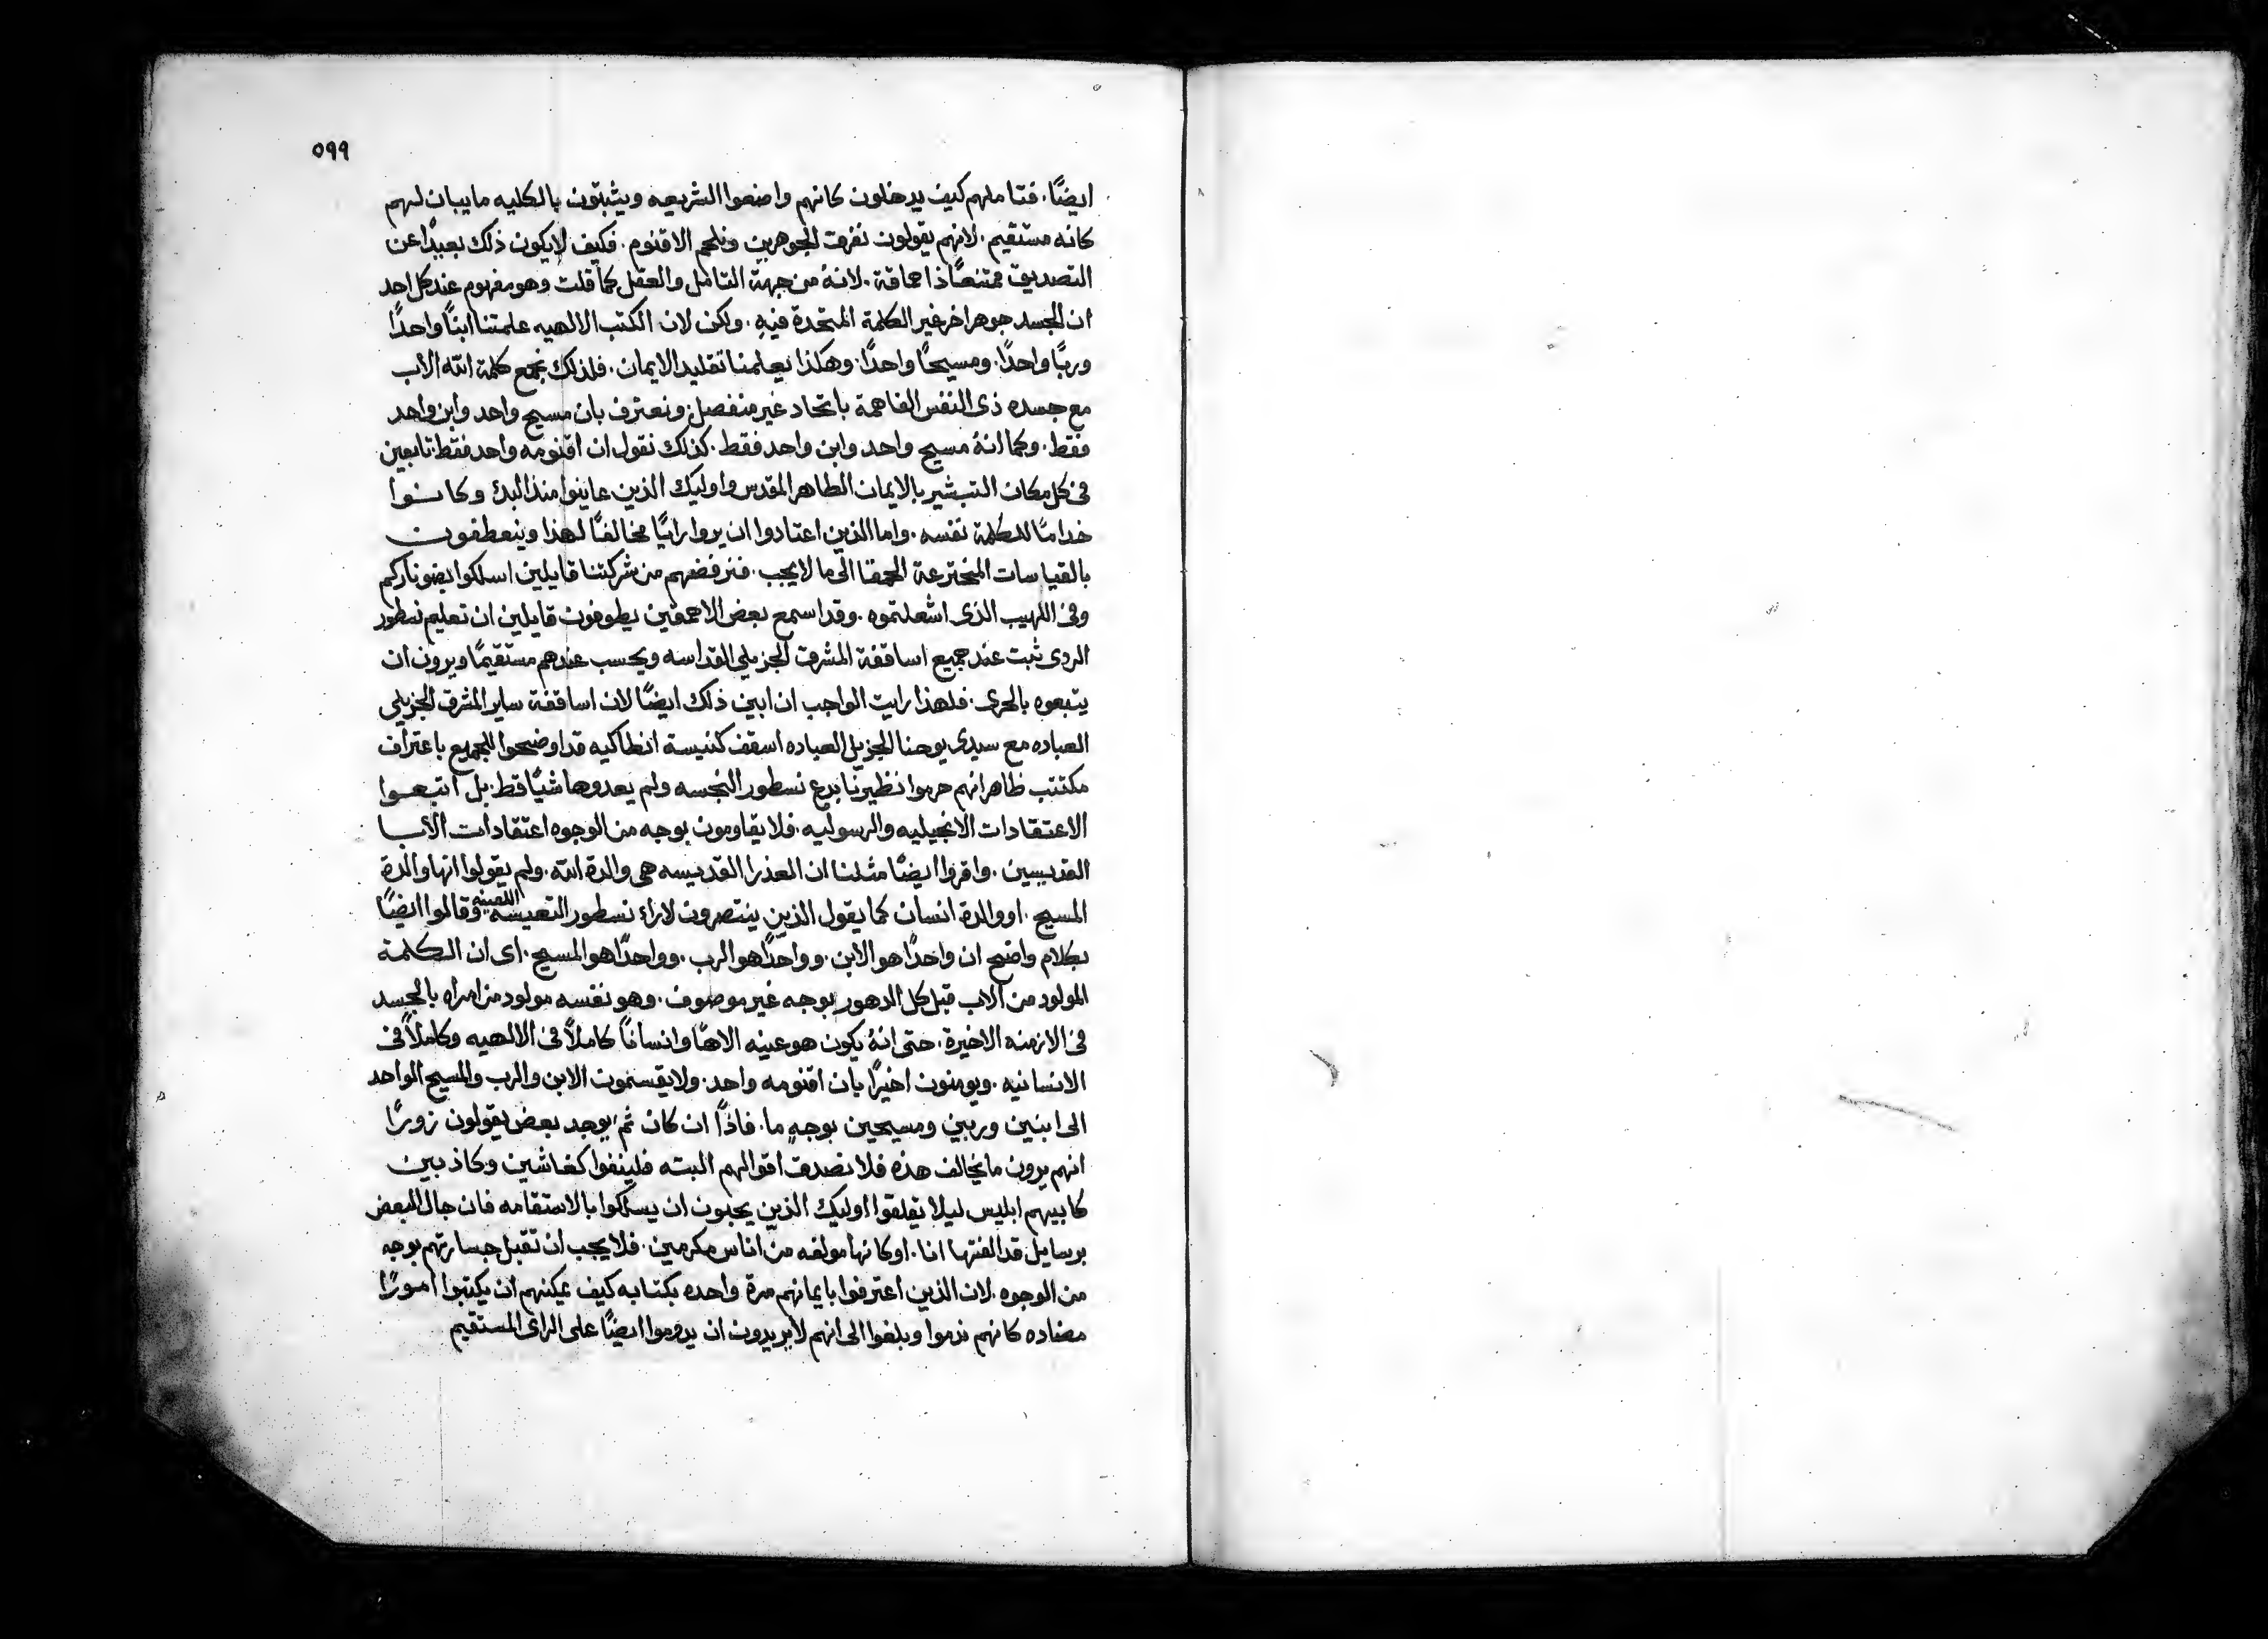 ٥٩٩
ايضًا. فتاملهم كيف يدخلون كانهم واضعوا الشريعه ويثبتون بالكليه ما يبان لهم
كانه مستقيم. لانهم يقولون نفرق الجوهرين ونلحم الاقنوم. فكيف لايكون ذلك بعيدًا عن
التصديق ممتنعًا ذا حماقة. لانهُ من جهة التامل والعقل كما قلت وهو مفهوم عند كل احد
ان الجسد جوهر اخر غير الكلمة المتحدة فيهِ. ولكن لان الكتب الالهيه علمتنا ابنًا واحدًا
وربًا واحدًا. ومسيحًا واحدًا. وهكذا يعلمنا تقليد الايمان. فلذلك نجمع كلمة الله الاب
مع جسده ذى النفس الفاهمة باتحاد غير منفصل ونعترف بان مسيح واحد وابن واحد
فقط. وكما انهُ مسيح واحد وابن واحد فقط. كذلك نقول ان اقنومه واحد فقط. تابعين
فى كل مكان التبشير بالايمان الطاهر المقدس واوليك الذين عاينوا منذ البدئ وكانوا
خدامًا للكلمة نفسه. واما الذين اعتادوا ان يروا رايًا مخالفًا لهذا وينعطفون
بالقياسات المخترعة الحمقا الى ما لايجب. فنرفضهم من شركتنا قايلين اسلكوا بضو ناركم
وفى اللهيب الذى اشعلتموه. وقد اسمع بعض الاحمقين يطوفون قايلين ان تعليم نسطور
الردى ثبت عند جميع اساقفة المشرق الجزيلى القداسه ويحسب عندهم مستقيمًا ويرون ان
يتبعوه بالحرى. فلهذا رايت الواجب ان ابين ذلك ايضًا لان اساقفة ساير المشرق الجزيلى
العباده مع سيدى يوحنا الجزيل العباده اسقف كنيسة انطاكيه قد اوضحوا للجميع باعتراف
مكتتب ظاهر انهم حرموا نظيرنا بدع نسطور النجسه ولم يعدوها شيًا قط. بل اتبعوا
الاعتقادات الانجيليه والرسوليه. فلا يقاومون بوجه من الوجوه اعتقادات الابا
القديسين. واقروا ايضًا مثلنا ان العذرا القديسه هى والدة الله. ولم يقولوا انها والدة
المسيح. او والدة انسان كما يقول الذين ينتصرون لاراء نسطور التعيسه اللعينه وقالوا ايضًا
بكلام واضح ان واحدًا هو الابن. وواحدًا هو الرب. وواحدًا هو المسيح. اى ان الكلمة
المولود من الاب قبل كل الدهور بوجه غير موصوف. وهو نفسه مولود من امراه بالجسد
فى الازمنه الاخيرة. حتى انهُ يكون هو عينه الاهًا وانسانًا كاملاً فى الالهيه وكاملاً فى
الانسانيه. ويومنون اخيرًا بان اقنومه واحد. ولايقسمون الابن والرب والمسيح الواحد
الى ابنين وربين ومسيحين بوجهٍ ما. فاذًا ان كان ثم يوجد بعض يقولون زورًا
انهم يرون ما يخالف هذه فلا نصدق اقوالهم البته فلينفوا كغاشين وكاذبين
كابيهم ابليس ليلا يقلقوا اوليك الذين يحبون ان يسلكوا بالاستقامه فان جال البعض
برسايل قد الفتها انا. او كانها مولفه من اناس مكرمين. فلا يجب ان تقبل جسارتهم بوجه
من الوجوه. لان الذين اعترفوا بايمانهم مرة واحده بكتابه كيف يمكنهم ان يكتبوا امورًا
مضاده كانهم ندموا وبلغوا الى انهم لايريدون ان يدوموا ايضًا على الراى المستقيم